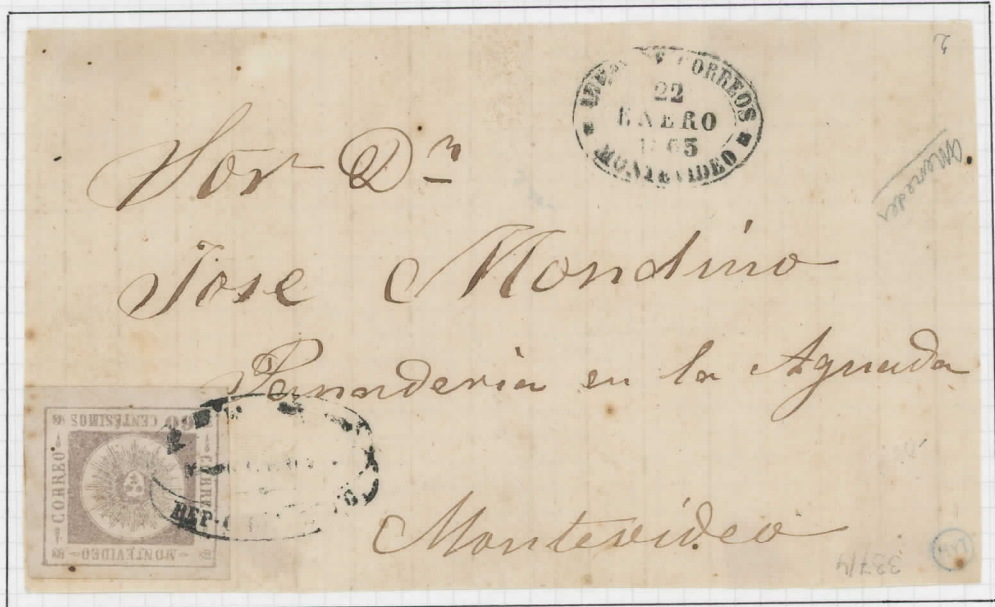 CORREOS
22
ENERO
MONTEVIDEO
Mercedes
Sor Dn
Jose Mondino
Panaderia en la Aguada
Montevideo
60 CENTESIMOS
CORREO
CORREO
MONTEVIDEO
REP.
3374